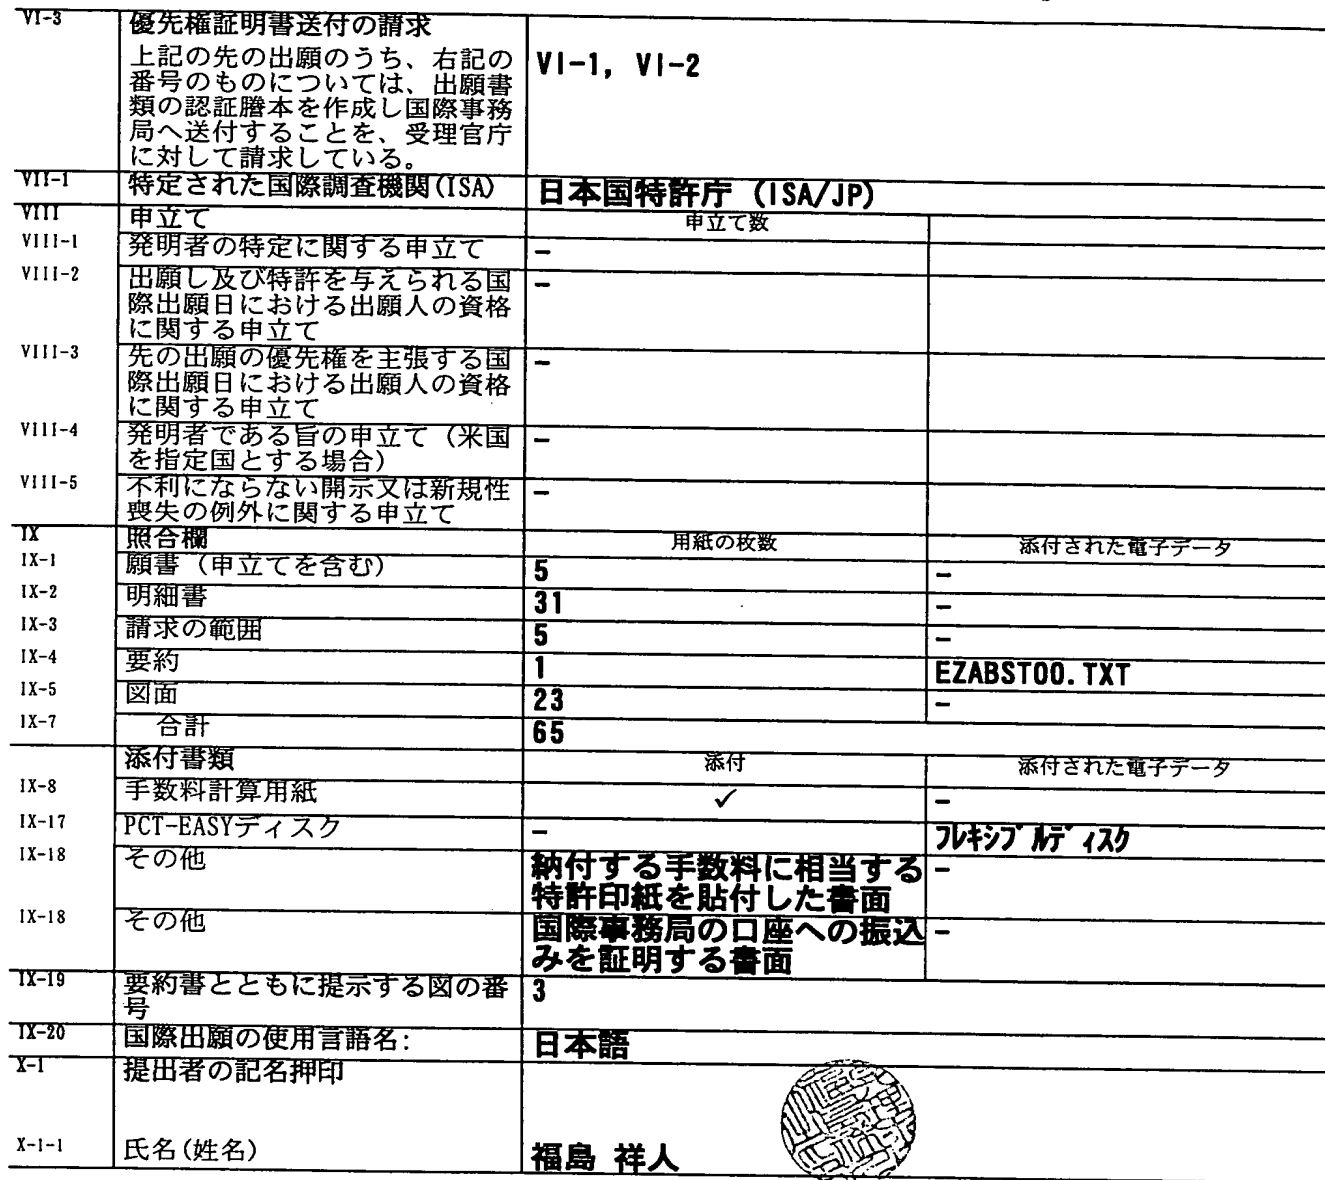 VI-3 優先権証明書送付の請求
上記の先の出願のうち、右記の VI-1, VI-2
番号のものについては、出願書
類の認証謄本を作成し国際事務
局へ送付することを、受理官庁
に対して請求している。
VII-1 特定された国際調査機関(ISA) 日本国特許庁 (ISA/JP)
VIII 申立て 申立て数
VIII-1 発明者の特定に関する申立て -
VIII-2 出願し及び特許を与えられる国 -
際出願日における出願人の資格
に関する申立て
VIII-3 先の出願の優先権を主張する国 -
際出願日における出願人の資格
に関する申立て
VIII-4 発明者である旨の申立て（米国 -
を指定国とする場合）
VIII-5 不利にならない開示又は新規性 -
喪失の例外に関する申立て
IX 照合欄 用紙の枚数 添付された電子データ
IX-1 願書（申立てを含む） 5 -
IX-2 明細書 31 -
IX-3 請求の範囲 5 -
IX-4 要約 1 EZABST00.TXT
IX-5 図面 23 -
IX-7 合計 65
添付書類 添付 添付された電子データ
IX-8 手数料計算用紙 ✓ -
IX-17 PCT-EASYディスク - フレキシブルディスク
IX-18 その他 納付する手数料に相当する -
特許印紙を貼付した書面
IX-18 その他 国際事務局の口座への振込 -
みを証明する書面
IX-19 要約書とともに提示する図の番 3
号
IX-20 国際出願の使用言語名: 日本語
X-1 提出者の記名押印
X-1-1 氏名(姓名) 福島 祥人